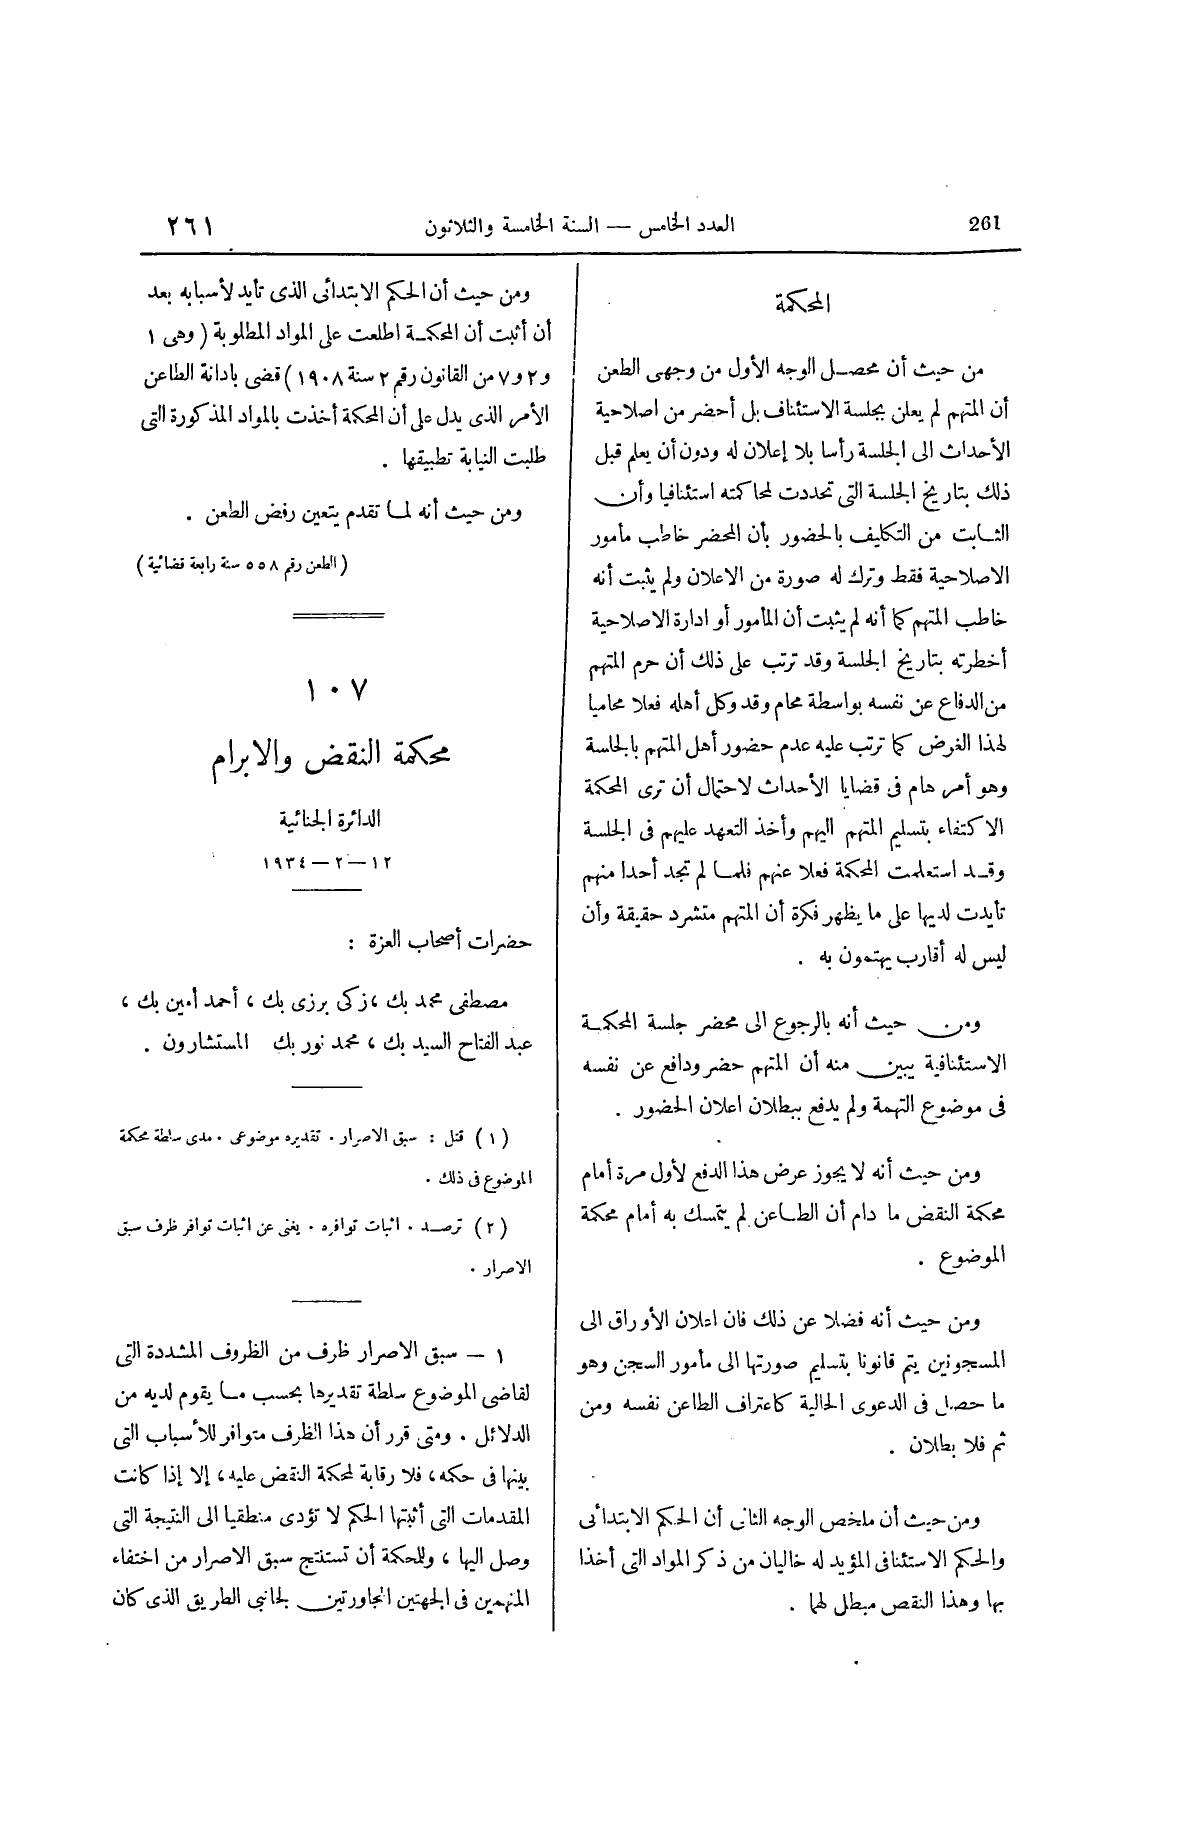 261 العدد الخامس — السنة الخامسة والثلاثون ٢٦١
المحكمة
من حيث أن محصل الوجه الأول من وجهى الطعن
أن المتهم لم يعلن بجلسة الاستئناف بل أحضر من اصلاحية
الأحداث الى الجلسة رأسا بلا إعلان له ودون أن يعلم قبل
ذلك بتاريخ الجلسة التى تحددت لمحاكمته استئنافيا وأن
الثابت من التكليف بالحضور بأن المحضر خاطب مأمور
الاصلاحية فقط وترك له صورة من الاعلان ولم يثبت أنه
خاطب المتهم كما أنه لم يثبت أن المأمور أو ادارة الاصلاحية
أخطرته بتاريخ الجلسة وقد ترتب على ذلك أن حرم المتهم
من الدفاع عن نفسه بواسطة محام وقد وكل أهله فعلا محاميا
لهذا الغرض كما ترتب عليه عدم حضور أهل المتهم بالجلسة
وهو أمر هام فى قضايا الأحداث لاحتمال أن ترى المحكمة
الاكتفاء بتسليم المتهم اليهم وأخذ التعهد عليهم فى الجلسة
وقد استعلمت المحكمة فعلا عنهم فلما لم تجد أحدا منهم
تأيدت لديها على ما يظهر فكرة أن المتهم متشرد حقيقة وأن
ليس له أقارب يهتمون به .
ومن حيث أنه بالرجوع الى محضر جلسة المحكمة
الاستئنافية يبين منه أن المتهم حضر ودافع عن نفسه
فى موضوع التهمة ولم يدفع ببطلان اعلان الحضور .
ومن حيث أنه لا يجوز عرض هذا الدفع لأول مرة أمام
محكمة النقض ما دام أن الطاعن لم يتمسك به أمام محكمة
الموضوع .
ومن حيث أنه فضلا عن ذلك فان اعلان الأوراق الى
المسجونين يتم قانونا بتسليم صورتها الى مأمور السجن وهو
ما حصل فى الدعوى الحالية كاعتراف الطاعن نفسه ومن
ثم فلا بطلان .
ومن حيث أن ملخص الوجه الثانى أن الحكم الابتدائى
والحكم الاستئنافى المؤيد له خاليان من ذكر المواد التى أخذا
بها وهذا النقص مبطل لهما .
ومن حيث أن الحكم الابتدائى الذى تأيد لأسبابه بعد
أن أثبت أن المحكمة اطلعت على المواد المطلوبة ( وهى ١
و٢ و٧ من القانون رقم ٢ سنة ١٩٠٨ ) قضى بادانة الطاعن
الأمر الذى يدل على أن المحكمة أخذت بالمواد المذكورة التى
طلبت النيابة تطبيقها .
ومن حيث أنه لما تقدم يتعين رفض الطعن .
( الطعن رقم ٥٥٨ سنة رابعة قضائية )
١٠٧
محكمة النقض والابرام
الدائرة الجنائية
١٢ — ٢ — ١٩٣٤
حضرات أصحاب العزة :
مصطفى محمد بك ، زكى برزى بك ، أحمد أمين بك ،
عبد الفتاح السيد بك ، محمد نور بك المستشارون .
( ١ ) قتل : سبق الاصرار . تقديره موضوعى . مدى سلطة محكمة
الموضوع فى ذلك .
( ٢ ) ترصد . اثبات توافره . يغنى عن اثبات توافر ظرف سبق
الاصرار .
١ — سبق الاصرار ظرف من الظروف المشددة التى
لقاضى الموضوع سلطة تقديرها بحسب ما يقوم لديه من
الدلائل . ومتى قرر أن هذا الظرف متوافر للأسباب التى
بينها فى حكمه ، فلا رقابة لمحكمة النقض عليه ، إلا إذا كانت
المقدمات التى أثبتها الحكم لا تؤدى منطقيا الى النتيجة التى
وصل اليها ، وللمحكمة أن تستنتج سبق الاصرار من اختفاء
المتهمين فى الجهتين المجاورتين لجانبى الطريق الذى كان